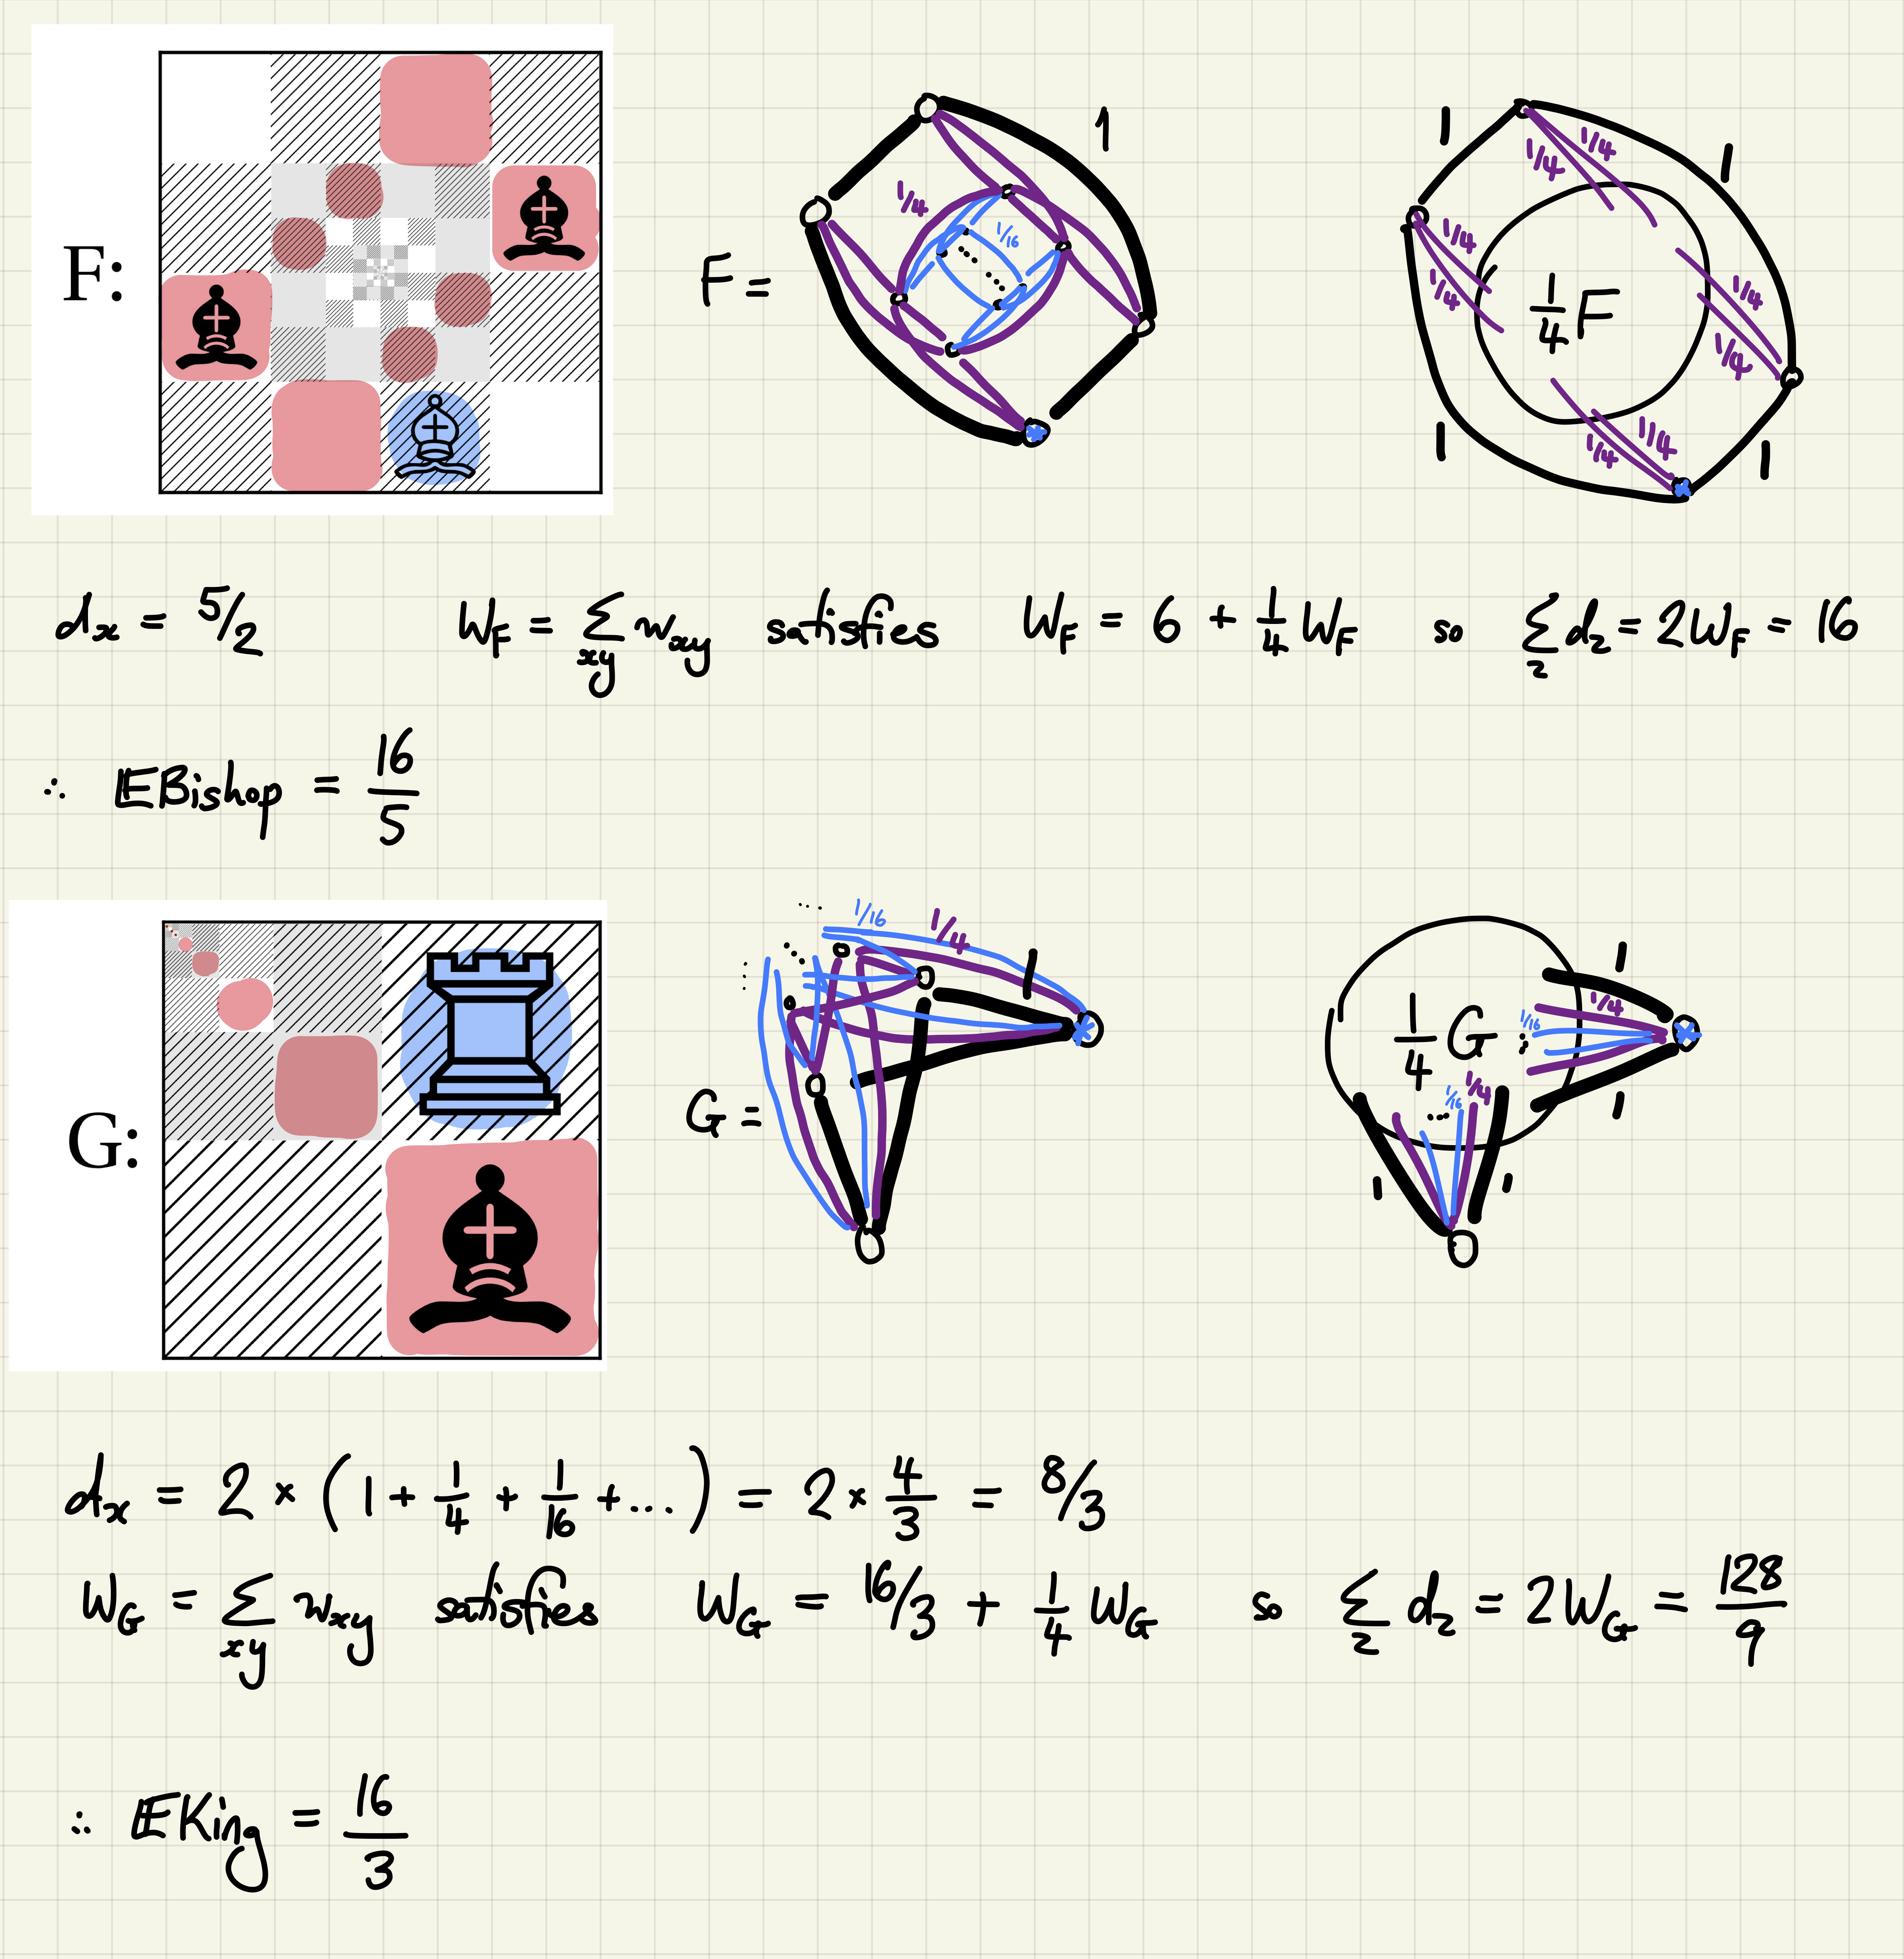 F:
F =
1
1/4
1/16
1
1
1/4
1/4
1/4
1/4
1/4
1/4
1/4
1/4
1/4 F
1
1
d_x = 5/2    W_F = Σ_xy w_xy satisfies    W_F = 6 + 1/4 W_F    so Σ_z d_z = 2W_F = 16
∴ EBishop = 16/5
G:
G =
...
1/16
1/4
1
1/4 G
1
1/4
1/16
1
1
1/16
1/4
1
d_x = 2 × (1 + 1/4 + 1/16 + ...) = 2 × 4/3 = 8/3
W_G = Σ_xy w_xy satisfies    W_G = 16/3 + 1/4 W_G    so Σ_z d_z = 2W_G = 128/9
∴ EKing = 16/3